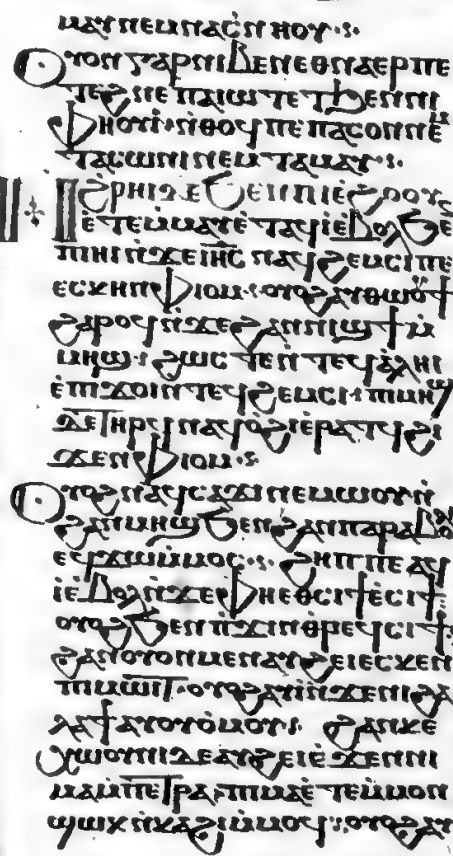 ⲛⲁⲓⲛⲉⲙⲛⲁⲥ̀ⲛⲏⲟⲩ·:·
ⲟⲩⲟⲛⲅⲁⲣⲛⲓⲃⲉⲛⲉⲑⲛⲁⲉⲣⲡⲉ
ⲧⲉϩⲛⲉⲡⲁⲓⲱⲧⲉⲧϧⲉⲛⲛⲓ
ⲫⲏⲟⲩⲓ·ⲛ̀ⲑⲟϥⲡⲉⲡⲁⲥⲟⲛⲛⲉⲙ
ⲧⲁⲥⲱⲛⲓⲛⲉⲙⲧⲁⲙⲁⲩ·:·
ⲛ̀ϩⲣⲏⲓⲇⲉϧⲉⲛⲡⲓⲉ̀ϩⲟⲟⲩ
ⲉ̀ⲧⲉⲙⲙⲁⲩⲉ̀ⲧⲁϥⲓ̀ⲉ̀ⲃⲟⲗϧⲉⲛ
ⲡⲓⲏⲓⲛ̀ϫⲉⲓⲏ̅ⲥ̅ⲛⲁϥϩⲉⲙⲥⲓⲡⲉ
ⲉⲥⲕⲉⲛⲫⲓⲟⲙ·ⲟⲩⲟϩⲁⲩⲑⲱⲟⲩϯ
ϩⲁⲣⲟϥⲛ̀ϫⲉϩⲁⲛⲛⲓϣϯⲙ̀
ⲙⲏϣ·ϩⲱⲥⲧⲉⲛ̀ⲧⲉϥⲁ̀ⲗⲏⲓ
ⲉ̀ⲡϫⲟⲓⲛ̀ⲧⲉϥϩⲉⲙⲥⲓ·ⲡⲓⲙⲏϣ
ⲇⲉⲧⲏⲣϥⲛⲁϥⲟ̀ϩⲓⲉ̀ⲣⲁⲧϥϩⲓ
ϫⲉⲛⲫⲓⲟⲙ·:
ⲟⲩⲟϩⲛⲁϥⲥⲁϫⲓⲛⲉⲙⲱⲟⲩⲛ̀
ϩⲁⲛⲙⲏϣϧⲉⲛϩⲁⲛⲡⲁⲣⲁⲃⲟⲗⲏ
ⲉϥϫⲱⲙ̀ⲙⲟⲥ·:ϩⲏⲡⲡⲉⲁϥ
ⲓ̀ⲉ̀ⲃⲟⲗⲛ̀ϫⲉⲫⲏⲉⲑⲥⲓϯⲉ̀ⲥⲓϯ
ⲟⲩⲟϩϧⲉⲛⲡϫⲓⲛⲑⲣⲉϥⲥⲓϯ·
ϩⲁⲛⲟⲩⲟⲛⲙⲉⲛⲁⲩϩⲉⲓⲉⲥⲕⲉⲛ
ⲡⲓⲙⲱⲓⲧ·ⲟⲩⲟϩⲁⲩⲓ̀ⲛ̀ϫⲉⲛⲓϩⲁ
ⲗⲁϯⲁⲩⲟⲩⲟⲙⲟⲩ·:ϩⲁⲛⲕⲉ
ⲭⲱⲟⲩⲛⲓⲇⲉⲁⲩϩⲉⲓⲉ̀ϫⲉⲛⲛⲓ
ⲙⲁⲙ̀ⲡⲉⲧⲣⲁ·ⲡⲓⲙⲁⲉ̀ⲧⲉⲙⲙⲟⲛ
ϣⲱⲕⲛ̀ⲕⲁϩⲓⲙ̀ⲙⲟϥ·:ⲟⲩⲟϩⲁⲩ